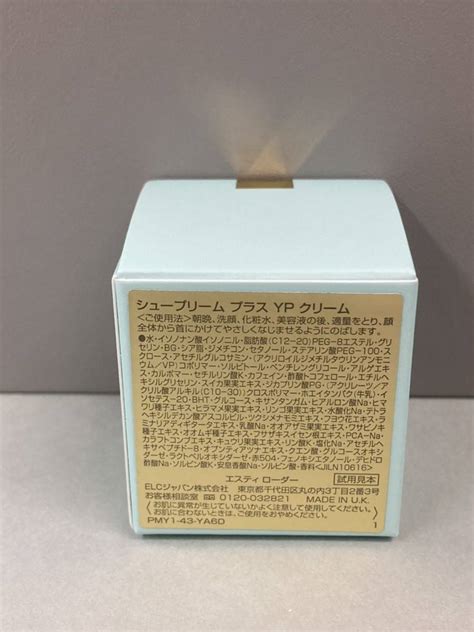 シュープリーム プラス YP クリーム
<ご使用法>朝晩、洗顔、化粧水、美容液の後、適量をとり、顔
全体から首にかけてやさしくなじませるようにのばします。
●水・イソノナン酸イソノニル・脂肪酸(C12-20)PEG-8エステル・グリ
セリン・BG・シア脂・ジメチコン・セタノール・ステアリン酸PEG-100・ス
クロース・アセチルグルコサミン・(アクリロイルジメチルタウリンアンモニ
ウム/VP)コポリマー・ソルビトール・ペンチレングリコール・アルゲエキ
ス・カルボマー・セチルリン酸K・カフェイン・酢酸トコフェロール・エチルヘ
キシルグリセリン・スイカ果実エキス・ジカプリリン酸PG・(アクリレーツ/ア
クリル酸アルキル(C10-30))クロスポリマー・ホエイタンパク(牛乳)・イ
ソセテス-20・BHT・レシチン・キサンタンガム・ヒアルロン酸Na・ヒマ
ワリ種子エキス・ヒラマメ果実エキス・リンゴ果実エキス・水酸化Na・テトラ
PCA-Na
クラフトコンブエキス・キュウリ果実エキス・リン酸K・塩化Na・アセチル
ヘキサペプチド-8・オプンチアツナエキス・クエン酸・グルコースオキシダー
ゼ・ラクトペルオキシダーゼ・赤504・フェノキシエタノール・デヒドロ
酢酸Na・ソルビン酸K・安息香酸Na・ソルビン酸・香料<ILN10616>
エスティ ローダー
試用見本
ELCジャパン株式会社 東京都千代田区丸の内3丁目2番3号
お客様相談室 0120-032821 MADE IN U.K.
お肌に異常が生じていないかよく注意して使用してください。
お肌に合わないときは、ご使用をおやめください。
PMY1-43-YA6D 1